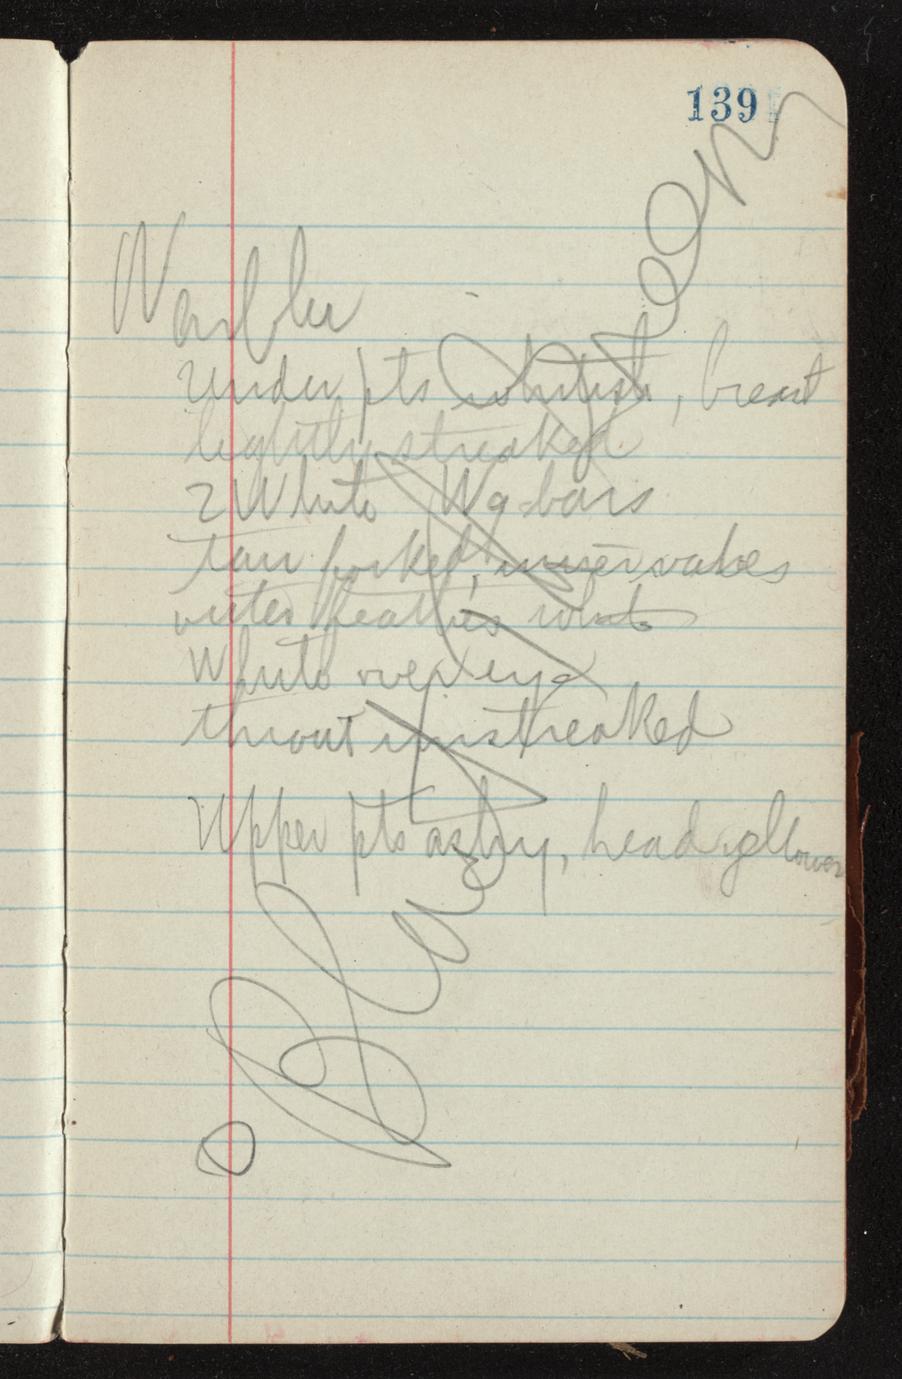 139
Warbler
Under pts whitish, breast
lightly streaked
2 White Wg-bars
Tail forked, inner vanes
outer feathers white
White over eye
throat unstreaked
Upper pts ashy, head yellower
Black
green